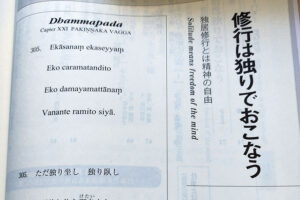 修行は独りでおこなう
独居修行とは精神の自由
Solitude means freedom of the mind
Dhammapada
Capter XXI PAKIṆṆAKA VAGGA
305. Ekāsanaṃ ekaseyyaṃ
Eko caramatandito
Eko damayamattānaṃ
Vanante ramito siyā.
305. ただ独り坐し 独り臥し
けたい